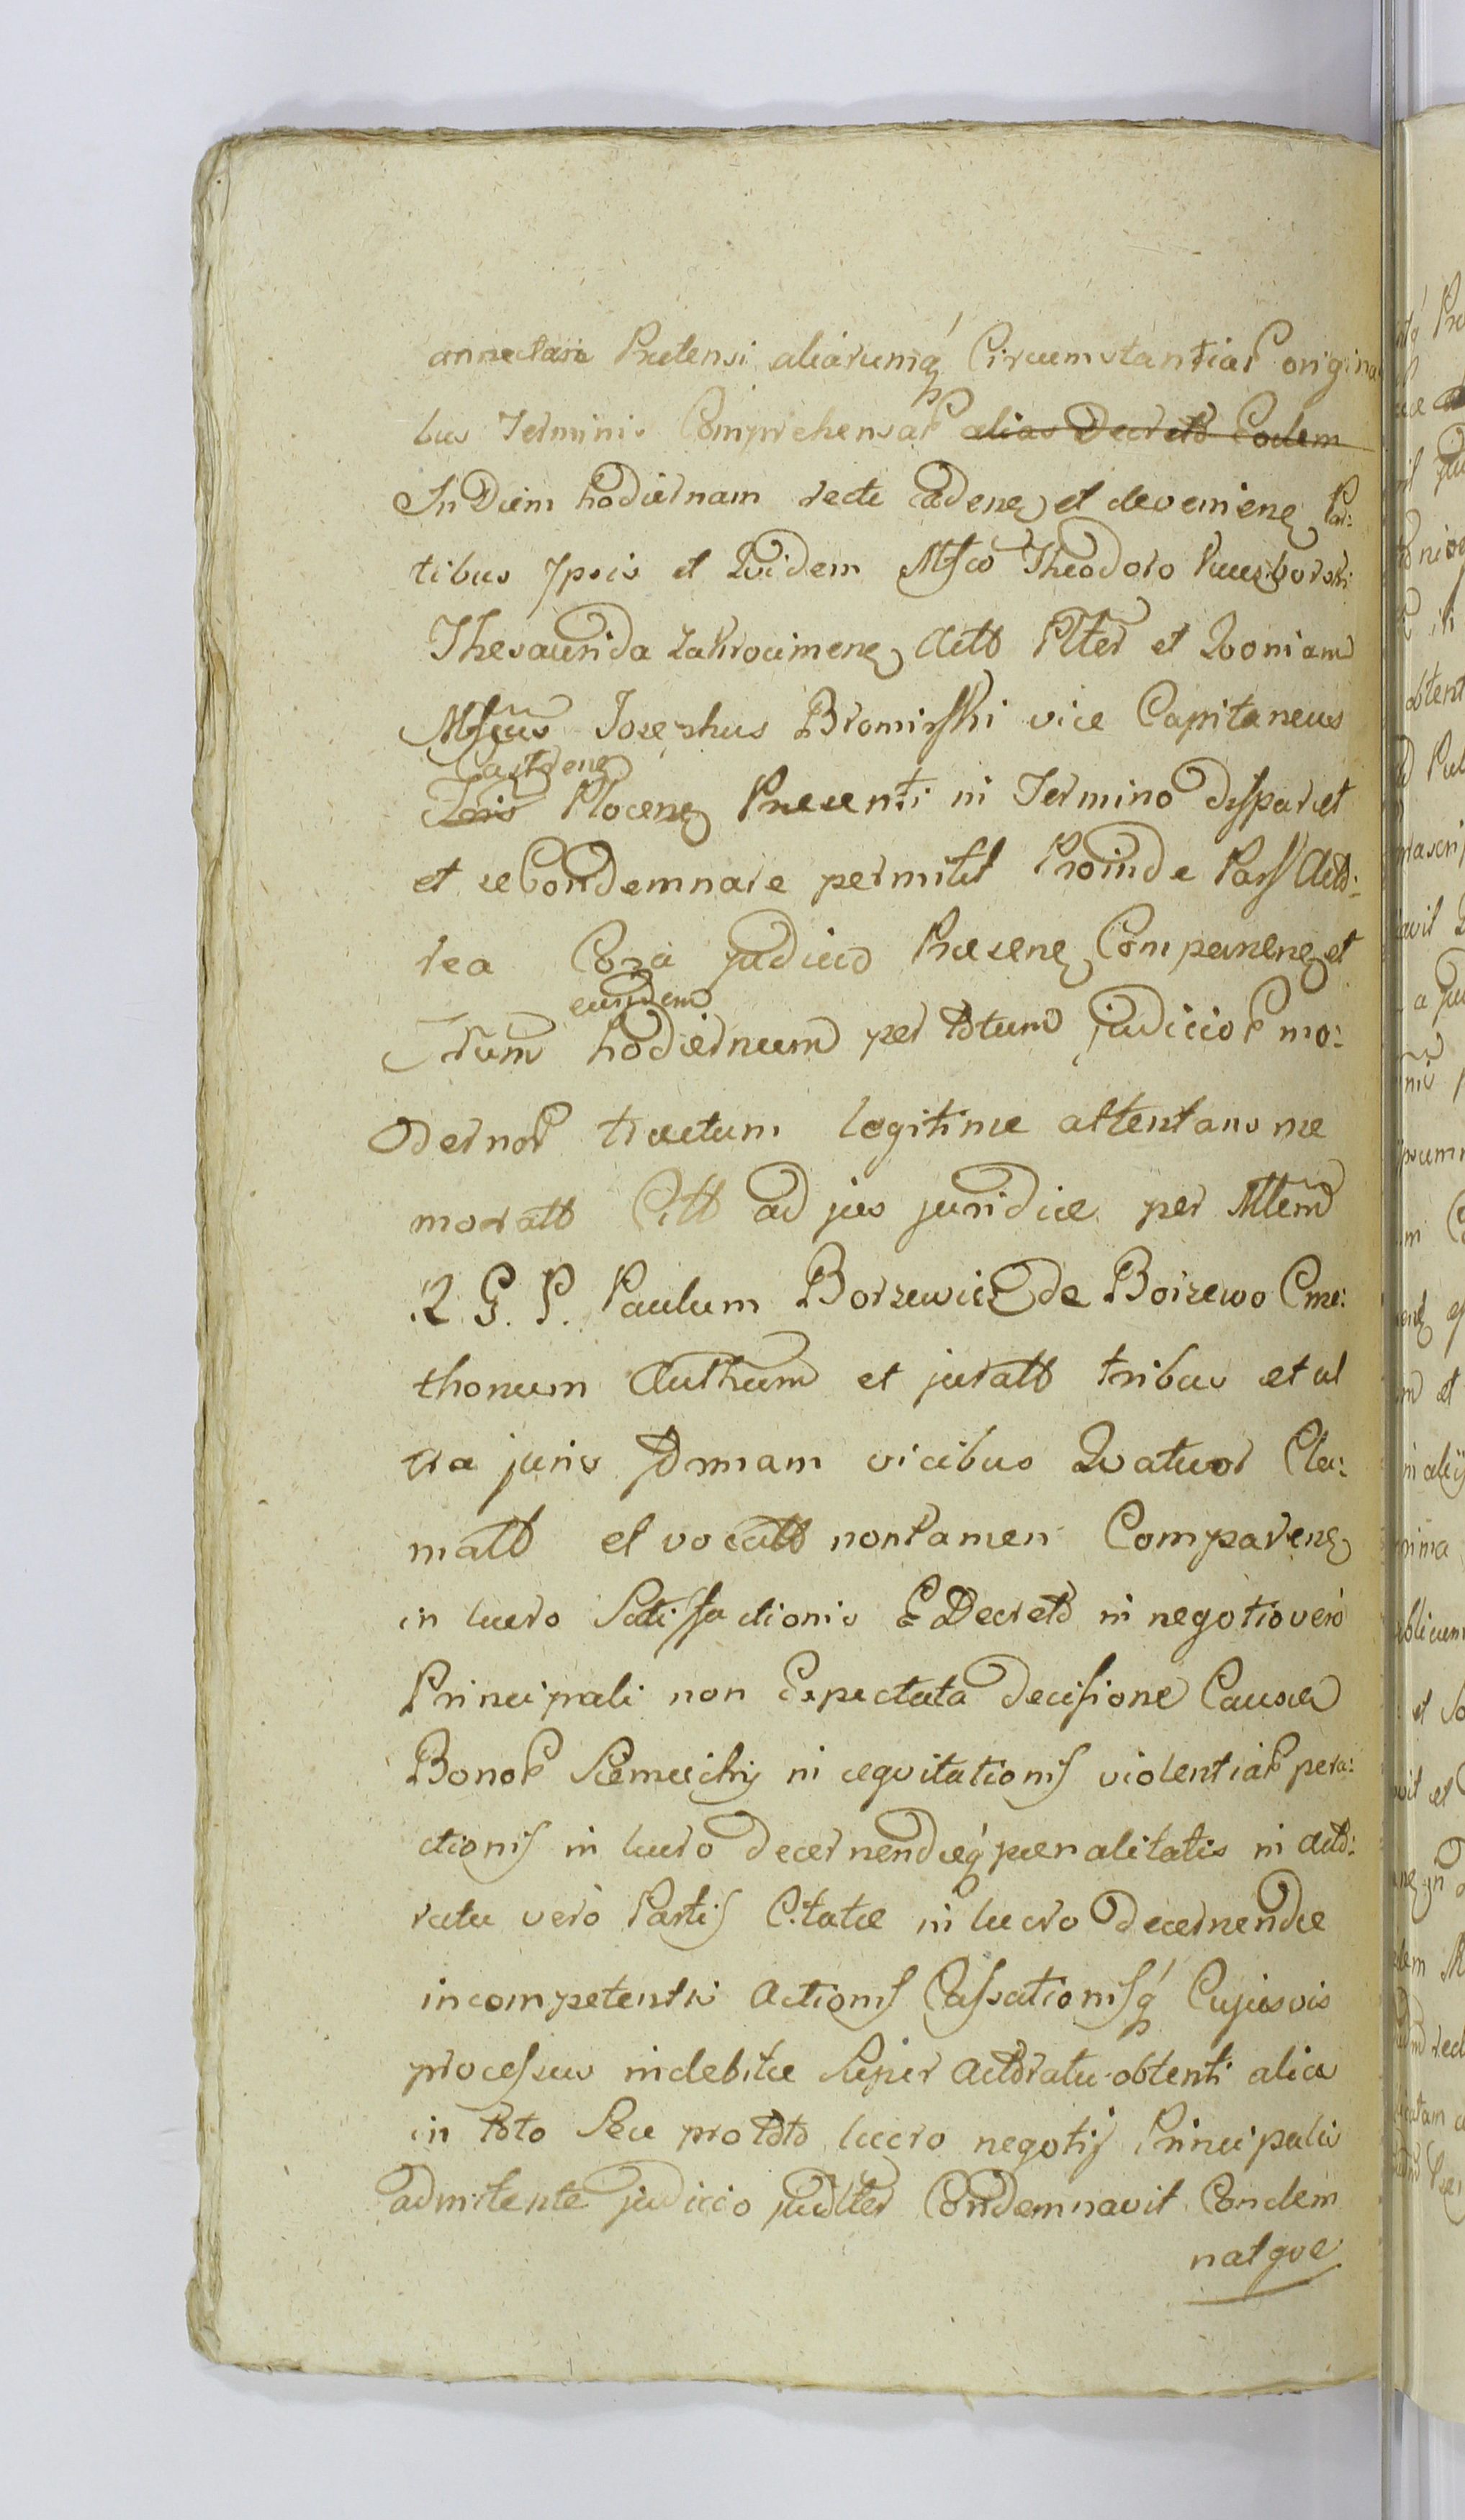 annectari Prætensi aliarumq́ Circumstantiar origina
bus Terminis Comprehensar alias Decreto Eodem
In Diem hodiernam recte Cadenȩ et devenienȩ Par:
tibus Ipsis et Qvidem Mfco Theodoro
Thesaurida Zakrocimenȩ Actto Plter et Qvoniam
Mfcus Josephus Bromirski vice Capitaneus
Castrenȩ
Tris Plocenȩ Præsenti in Termino disparet
et se Condemnare permitit Proinde Pars Acto:
rea Cora judicio Præsenȩ Comparenȩ et
eundem
Trum hodiernum per totum judicior mo:
dernor tractum legitime attentans me
moratt Citt ad jus juridice per Mtem
R. G. P. Paulum Borzewicz de Borzewo Cme:
thonum Authum et juratt tribus et ul
tra juris formam vicibus Qvatuor Cla:
matt et vocatt non tamen Comparenȩ
in lucro Satisfactionis E Decreto in negotio verò
Principali non Expectata decisione Causæ
Bonor Siemiechy in æqvitationis violentiar pera:
ctionis in lucro decernendæq́ pænalitatis in acto:
ratu verò Partis Citatæ in lucro decernendæ
incompetentis Actionis Cassationisq́ Cujusvis
processus indebitæ Super actoratu obtenti alias
in toto Seu pro toto lucro negotij Principalis
admitente judicio judlter Condemnavit Condem
natqve